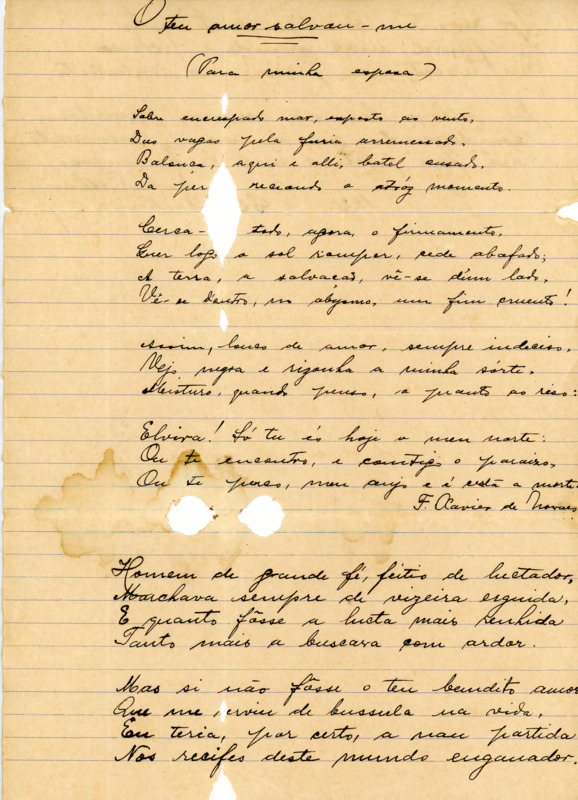 O teu amor salvou-me
(Para minha esposa)
Sobre encrespado mar, exposto ao vento,
Das vagas pela furia arremessado.
Balança, aqui e alli, batel ousado.
Da per receando o atróz momento.
Cerca- todo, agora, o firmamento,
Quer logo o sol romper, cede abafado;
A terra, a salvação, vê-se d'um lado,
Vê-se d'outro, no abysmo, um fim cruento!
Assim, louco de amor, sempre indeciso.
Vejo negra e rizonha a minha sórte.
Misturo, quando penso, o pranto ao riso:
Elvira! Só tu és hoje o meu norte:
Ou te encontro, e comtigo o paraizo,
Ou te perco, meu anjo e é certa a morte
F. Xavier de Novaes
Homem de grande fé, feitio de luctador,
Marchava sempre de vizeira erguida,
E quanto fôsse a lucta mais renhida
Tanto mais a buscava com ardor.
Mas si não fôsse o teu bendito amor
Que me serviu de bussula na vida,
Eu teria, por certo, a nau partida
Nos recifes deste mundo enganador.